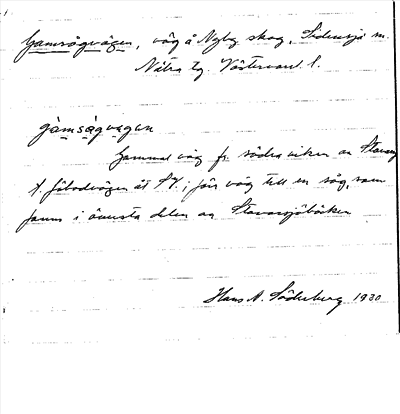 Gamsågvägen, väg å Nyby skog, Sidensjö sn.
Nätra tg. Västernorrl. l.
gàmságvǝgan
Gammal väg fr. södra viken av Stavarsj.
t. fäbodvägen åt SV.; för väg till en såg, som
fanns i översta delen av Stavarsjöbäcken
Hans N. Söderberg 1930